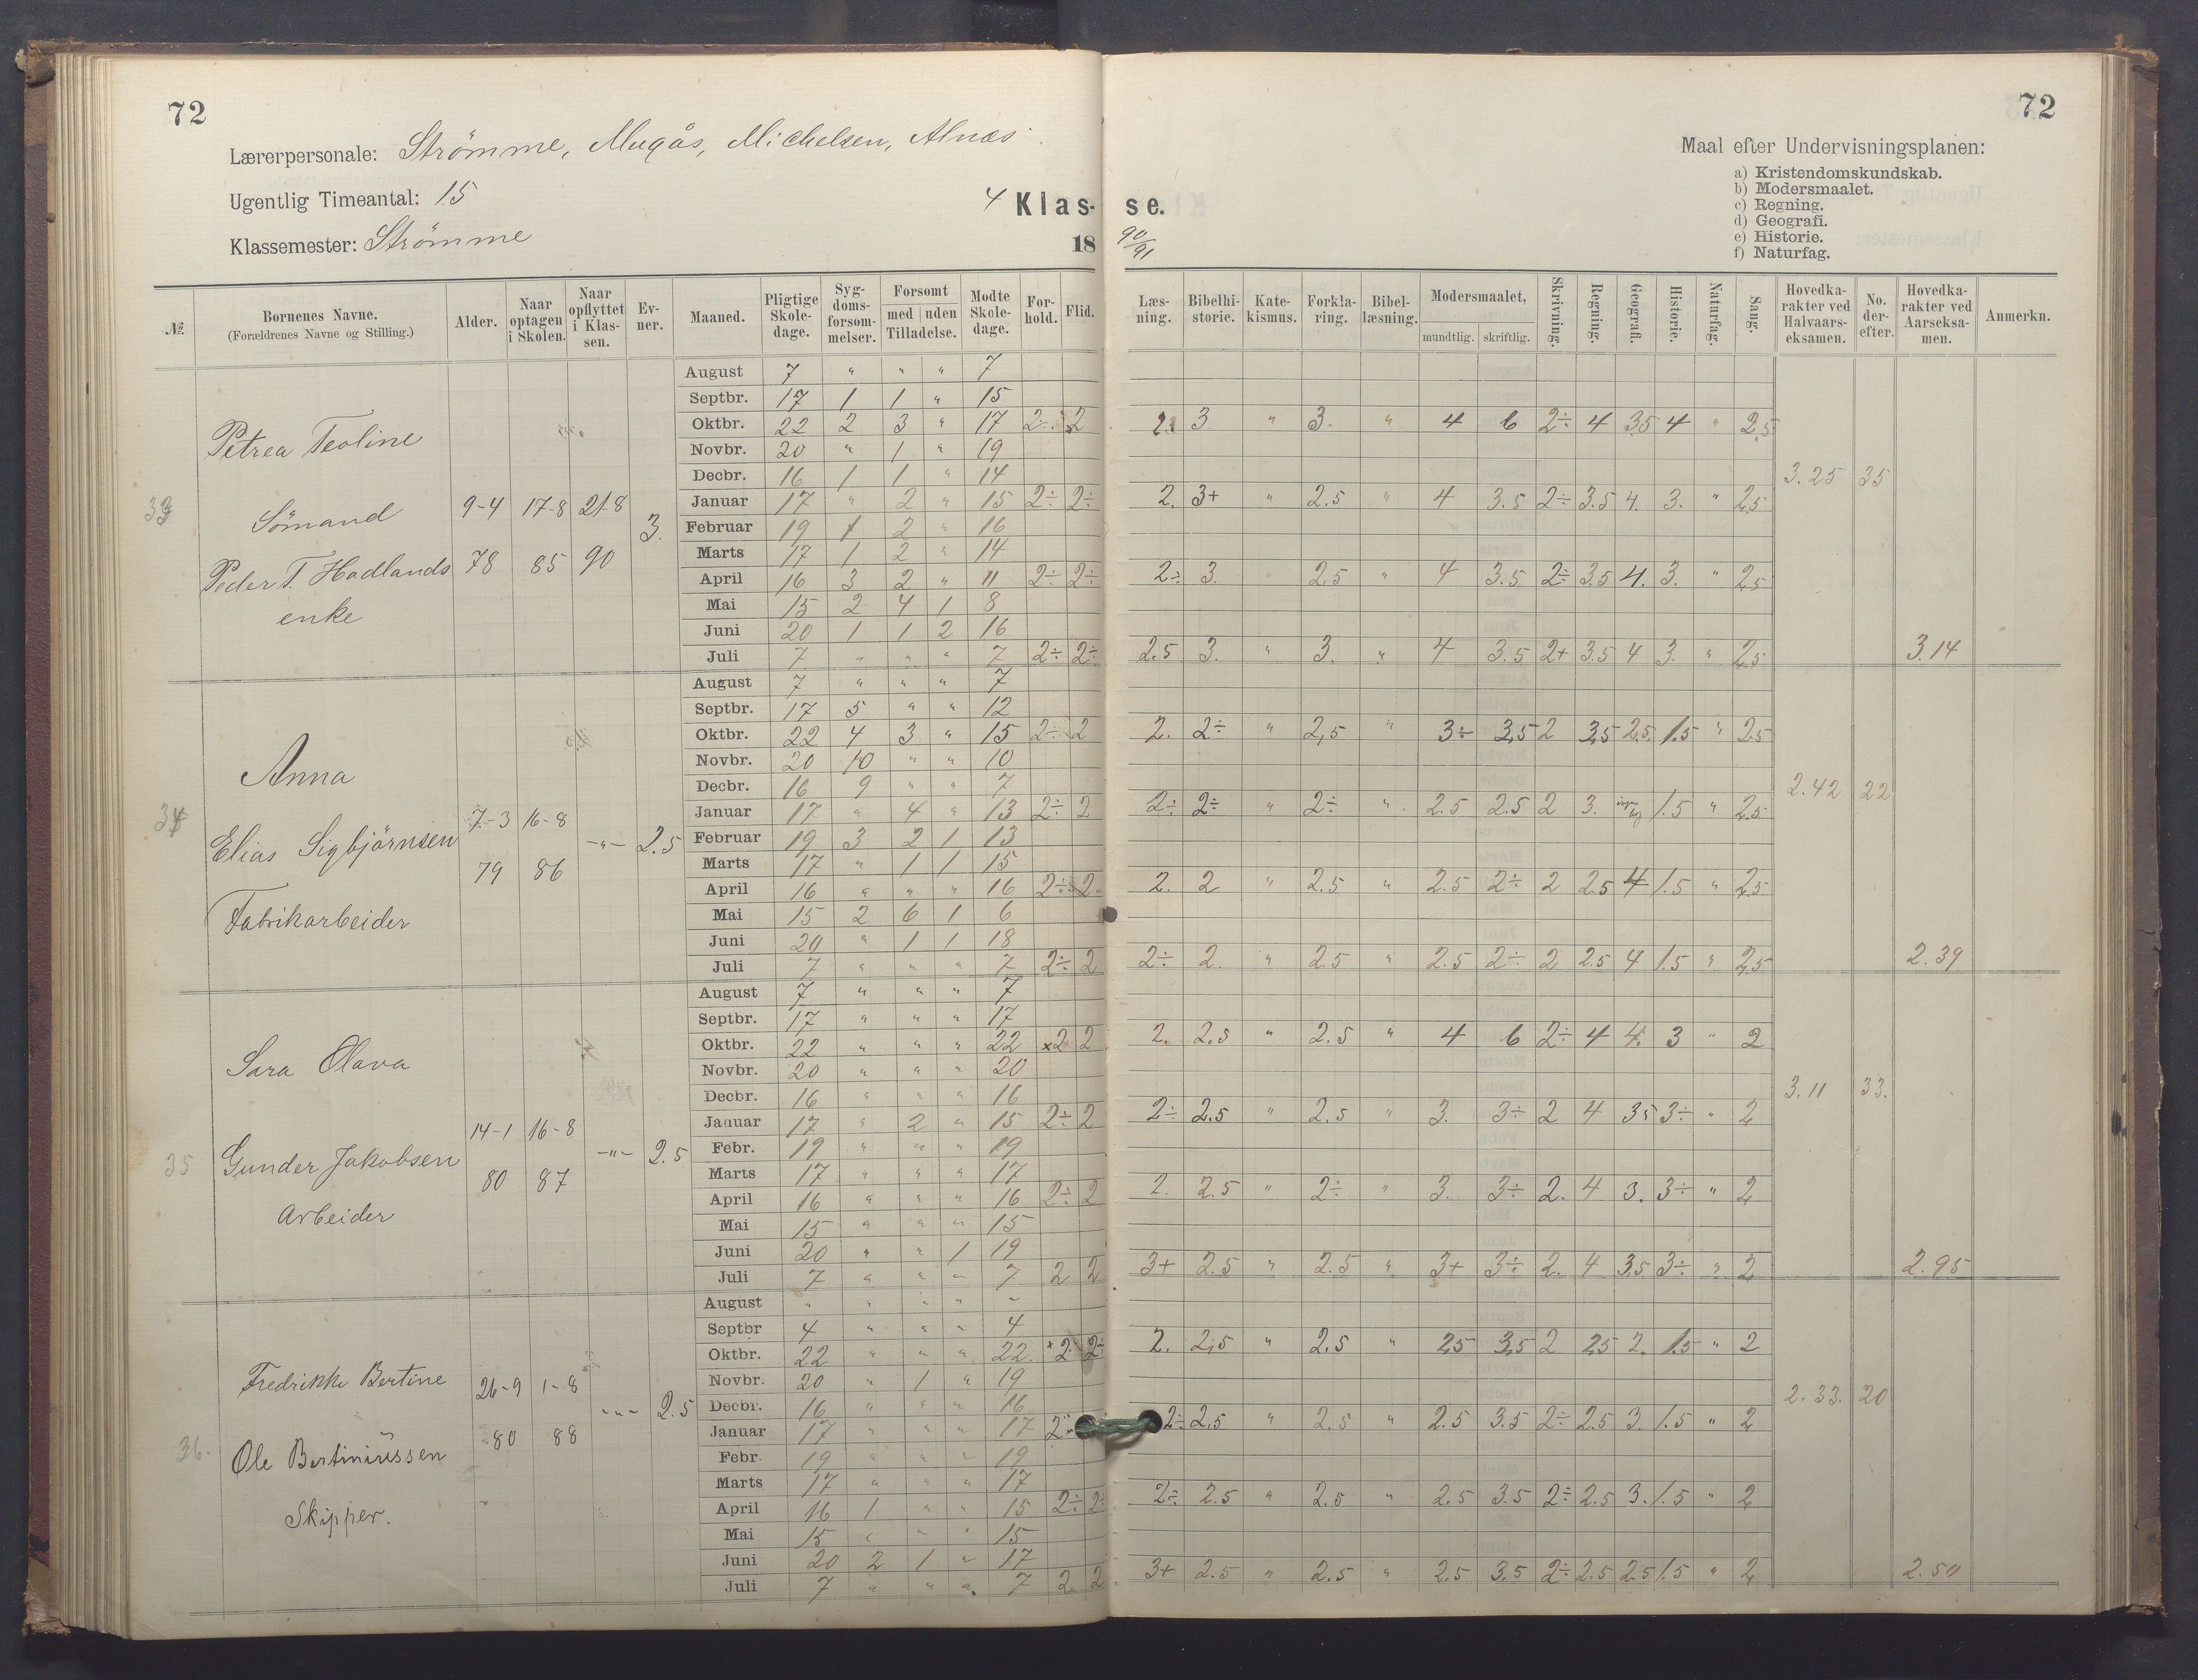 72
Lærerpersonale: Strömme, Mugås, Michelsen, Alnæs
Ugentlig Timeantal: 15
Klassemester: Strömme
4 Klas-
18
№
Bornenes Navne.
(Forældrenes Navne og Stilling.)
Alder.
Naar optagen i Skolen.
Naar opflyttet i Klassen.
Evner.
Maaned.
Pligtige Skoledage.
Sygdomsforsømmelser.
Forsomt
med | uden
Tilladelse.
Modte Skoledage.
Forhold.
Flid.
33
Petrea Teoline
Sömand
Peder T. Hadlands
enke
9-4 17-8 21-8
78 85 90
3.
August 7 " " " 7
Septbr. 17 1 1 " 15
Oktbr. 22 2 3 " 17 2÷ 2
Novbr. 20 " 1 " 19
Decbr. 16 1 1 " 14
Januar 17 " 2 " 15 2÷ 2÷
Februar 19 1 2 " 16
Marts 17 1 2 " 14
April 16 3 2 " 11 2÷ 2÷
Mai 15 2 4 1 8
Juni 20 1 1 2 16
Juli 7 " " " 7 2÷ 2÷
34
Anna
Elias Sigbjörnsen
Fabrikarbeider
7-3 16-8
79 86
-"- 2.5
August 7 " " " 7
Septbr. 17 5 " " 12
Oktbr. 22 4 3 " 15 2÷ 2
Novbr. 20 10 " " 10
Decbr. 16 9 " " 7
Januar 17 " 4 " 13 2÷ 2
Februar 19 3 2 1 13
Marts 17 " 1 1 15
April 16 " " " 16 2÷ 2
Mai 15 2 6 1 6
Juni 20 " 1 1 18
Juli 7 " " " 7 2÷ 2
35
Sara Olava
Gunder Jakobsen
Arbeider
14-1 16-8
80 87
-"- 2.5
August 7 " " " 7
Septbr. 17 " " " 17
Oktbr. 22 " " " 22 ×2 2
Novbr. 20 " " " 20
Decbr. 16 " " " 16
Januar 17 " 2 " 15 2÷ 2
Febr. 19 " " " 19
Marts 17 " " " 17
April 16 " " " 16 2÷ 2
Mai 15 " " " 15
Juni 20 " " 1 19
Juli 7 " " " 7 2 2
36.
Fredrikke Bertine
Ole Bertiniussen
Skipper.
26-9 1-8
80 88
-"- 2.5
August " " " " "
Septbr 4 " " " 4
Oktbr. 22 " " " 22. ×2 2÷
Novbr. 20 " 1 " 19
Decbr. 16 " " " 16
Januar 17 " " " 17 2
Febr 19 " " " 19
Marts 17 " " " 17
April 16 1 " " 15 2÷ 2÷
Mai 15 " " " 15
Juni 20 2 1 " 17
Juli 7 " " " 7 2 2
72
Maal efter Undervisningsplanen:
a) Kristendomskundskab.
b) Modersmaalet.
c) Regning.
d) Geografi.
e) Historie.
f) Naturfag.
se.
90/91
Læsning.
Bibelhistorie.
Katekismus.
Forklaring.
Bibellæsning.
Modersmaalet,
mundtlig. skriftlig.
Skrivning.
Regning.
Geografi.
Historie.
Naturfag.
Sang.
Hovedkarakter ved Halvaarseksamen.
No. derefter.
Hovedkarakter ved Aarseksamen.
Anmerkn.
2. 3 " 3. " 4 6 2÷ 4 3.5 4 " 2.5
3.25 35
2. 3+ " 2.5 " 4 3.5 2÷ 3.5 4. 3. " 2.5
2÷ 3. " 2.5 " 4 3.5 2÷ 3.5 4. 3. " 2.5
2.5 3. " 3. " 4 3.5 2+ 3.5 4 3. " 2.5 3.14
2. 2÷ " 2,5 " 3÷ 3,5 2 3,5 2,5. 1.5 " 2.5
2.42 22
2÷ 2÷ " 2÷ " 2.5 2.5 2 3. 1.5 " 2.5
2. 2 " 2.5 " 2.5 2÷ 2 2.5 4 1.5 " 2.5
2÷ 2. " 2.5 " 2.5 2÷ 2 2.5 4 1.5 " 2.5 2.39
2. 2.5 " 2.5 " 4 6 2÷ 4 4. 3 " 2
3.11 33.
2÷ 2.5 " 2.5 " 3. 3÷ 2 4 3.5 3÷ " 2
2. 2.5 " 2÷ " 3. 3÷ 2. 4 3. 3÷ " 2
3+ 2.5 " 2.5 " 3+ 3÷ 2. 4 3.5 3÷ " 2 2.95
2. 2,5 " 2.5 " 2.5 3,5 2 2,5 2. 1.5 " 2
2.33. 20
2÷ 2,5 " 2.5 " 2.5 3.5 2÷ 2.5 3. 1.5 " 2
2÷ 2.5 " 2.5 " 2.5 3.5 2÷ 2.5 3. 1.5 " 2
3+ 2.5 " 2.5 " 2.5 3.5 2÷ 2.5 2.5 1.5 " 2 2.50